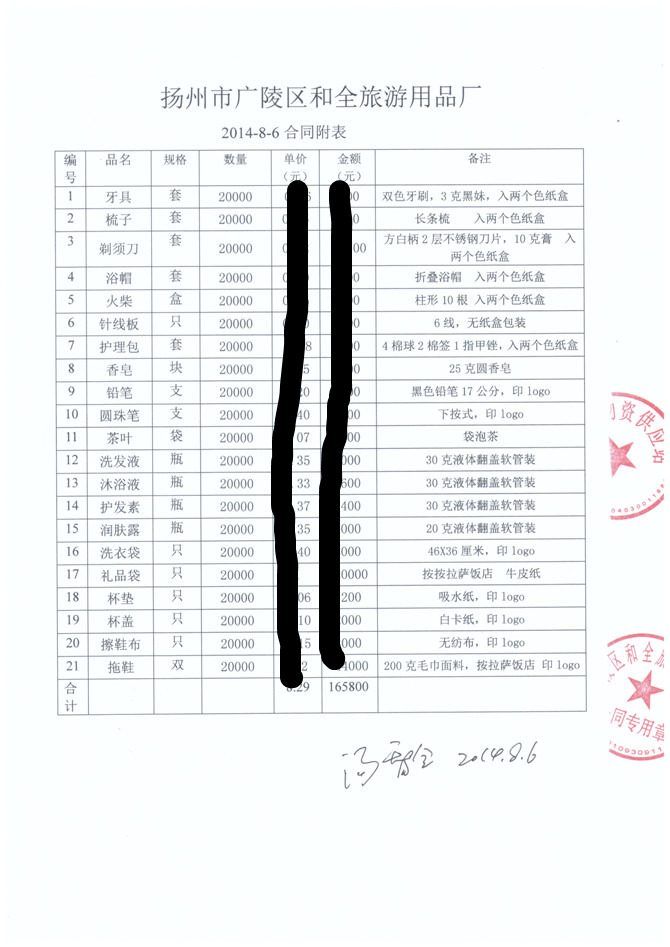 扬州市广陵区和全旅游用品厂
2014-8-6 合同附表
编号 品名 规格 数量 单价（元） 金额（元） 备注
1 牙具 套 20000 双色牙刷，3 克黑妹，入两个色纸盒
2 梳子 套 20000 长条梳 入两个色纸盒
3 剃须刀 套 20000 方白柄 2 层不锈钢刀片，10 克膏 入
两个色纸盒
4 浴帽 套 20000 折叠浴帽 入两个色纸盒
5 火柴 盒 20000 柱形 10 根 入两个色纸盒
6 针线板 只 20000 6 线，无纸盒包装
7 护理包 套 20000 4 棉球 2 棉签 1 指甲锉，入两个色纸盒
8 香皂 块 20000 25 克圆香皂
9 铅笔 支 20000 黑色铅笔 17 公分，印 logo
10 圆珠笔 支 20000 下按式，印 logo
11 茶叶 袋 20000 袋泡茶
12 洗发液 瓶 20000 30 克液体翻盖软管装
13 沐浴液 瓶 20000 30 克液体翻盖软管装
14 护发素 瓶 20000 30 克液体翻盖软管装
15 润肤露 瓶 20000 20 克液体翻盖软管装
16 洗衣袋 只 20000 46X36 厘米，印 logo
17 礼品袋 只 20000 按按拉萨饭店 牛皮纸
18 杯垫 只 20000 吸水纸，印 logo
19 杯盖 只 20000 白卡纸，印 logo
20 擦鞋布 只 20000 无纺布，印 logo
21 拖鞋 双 20000 200 克毛巾面料，按拉萨饭店 印 logo
合计 8.29 165800
2014.8.6
资供应站
区和全旅
同专用章